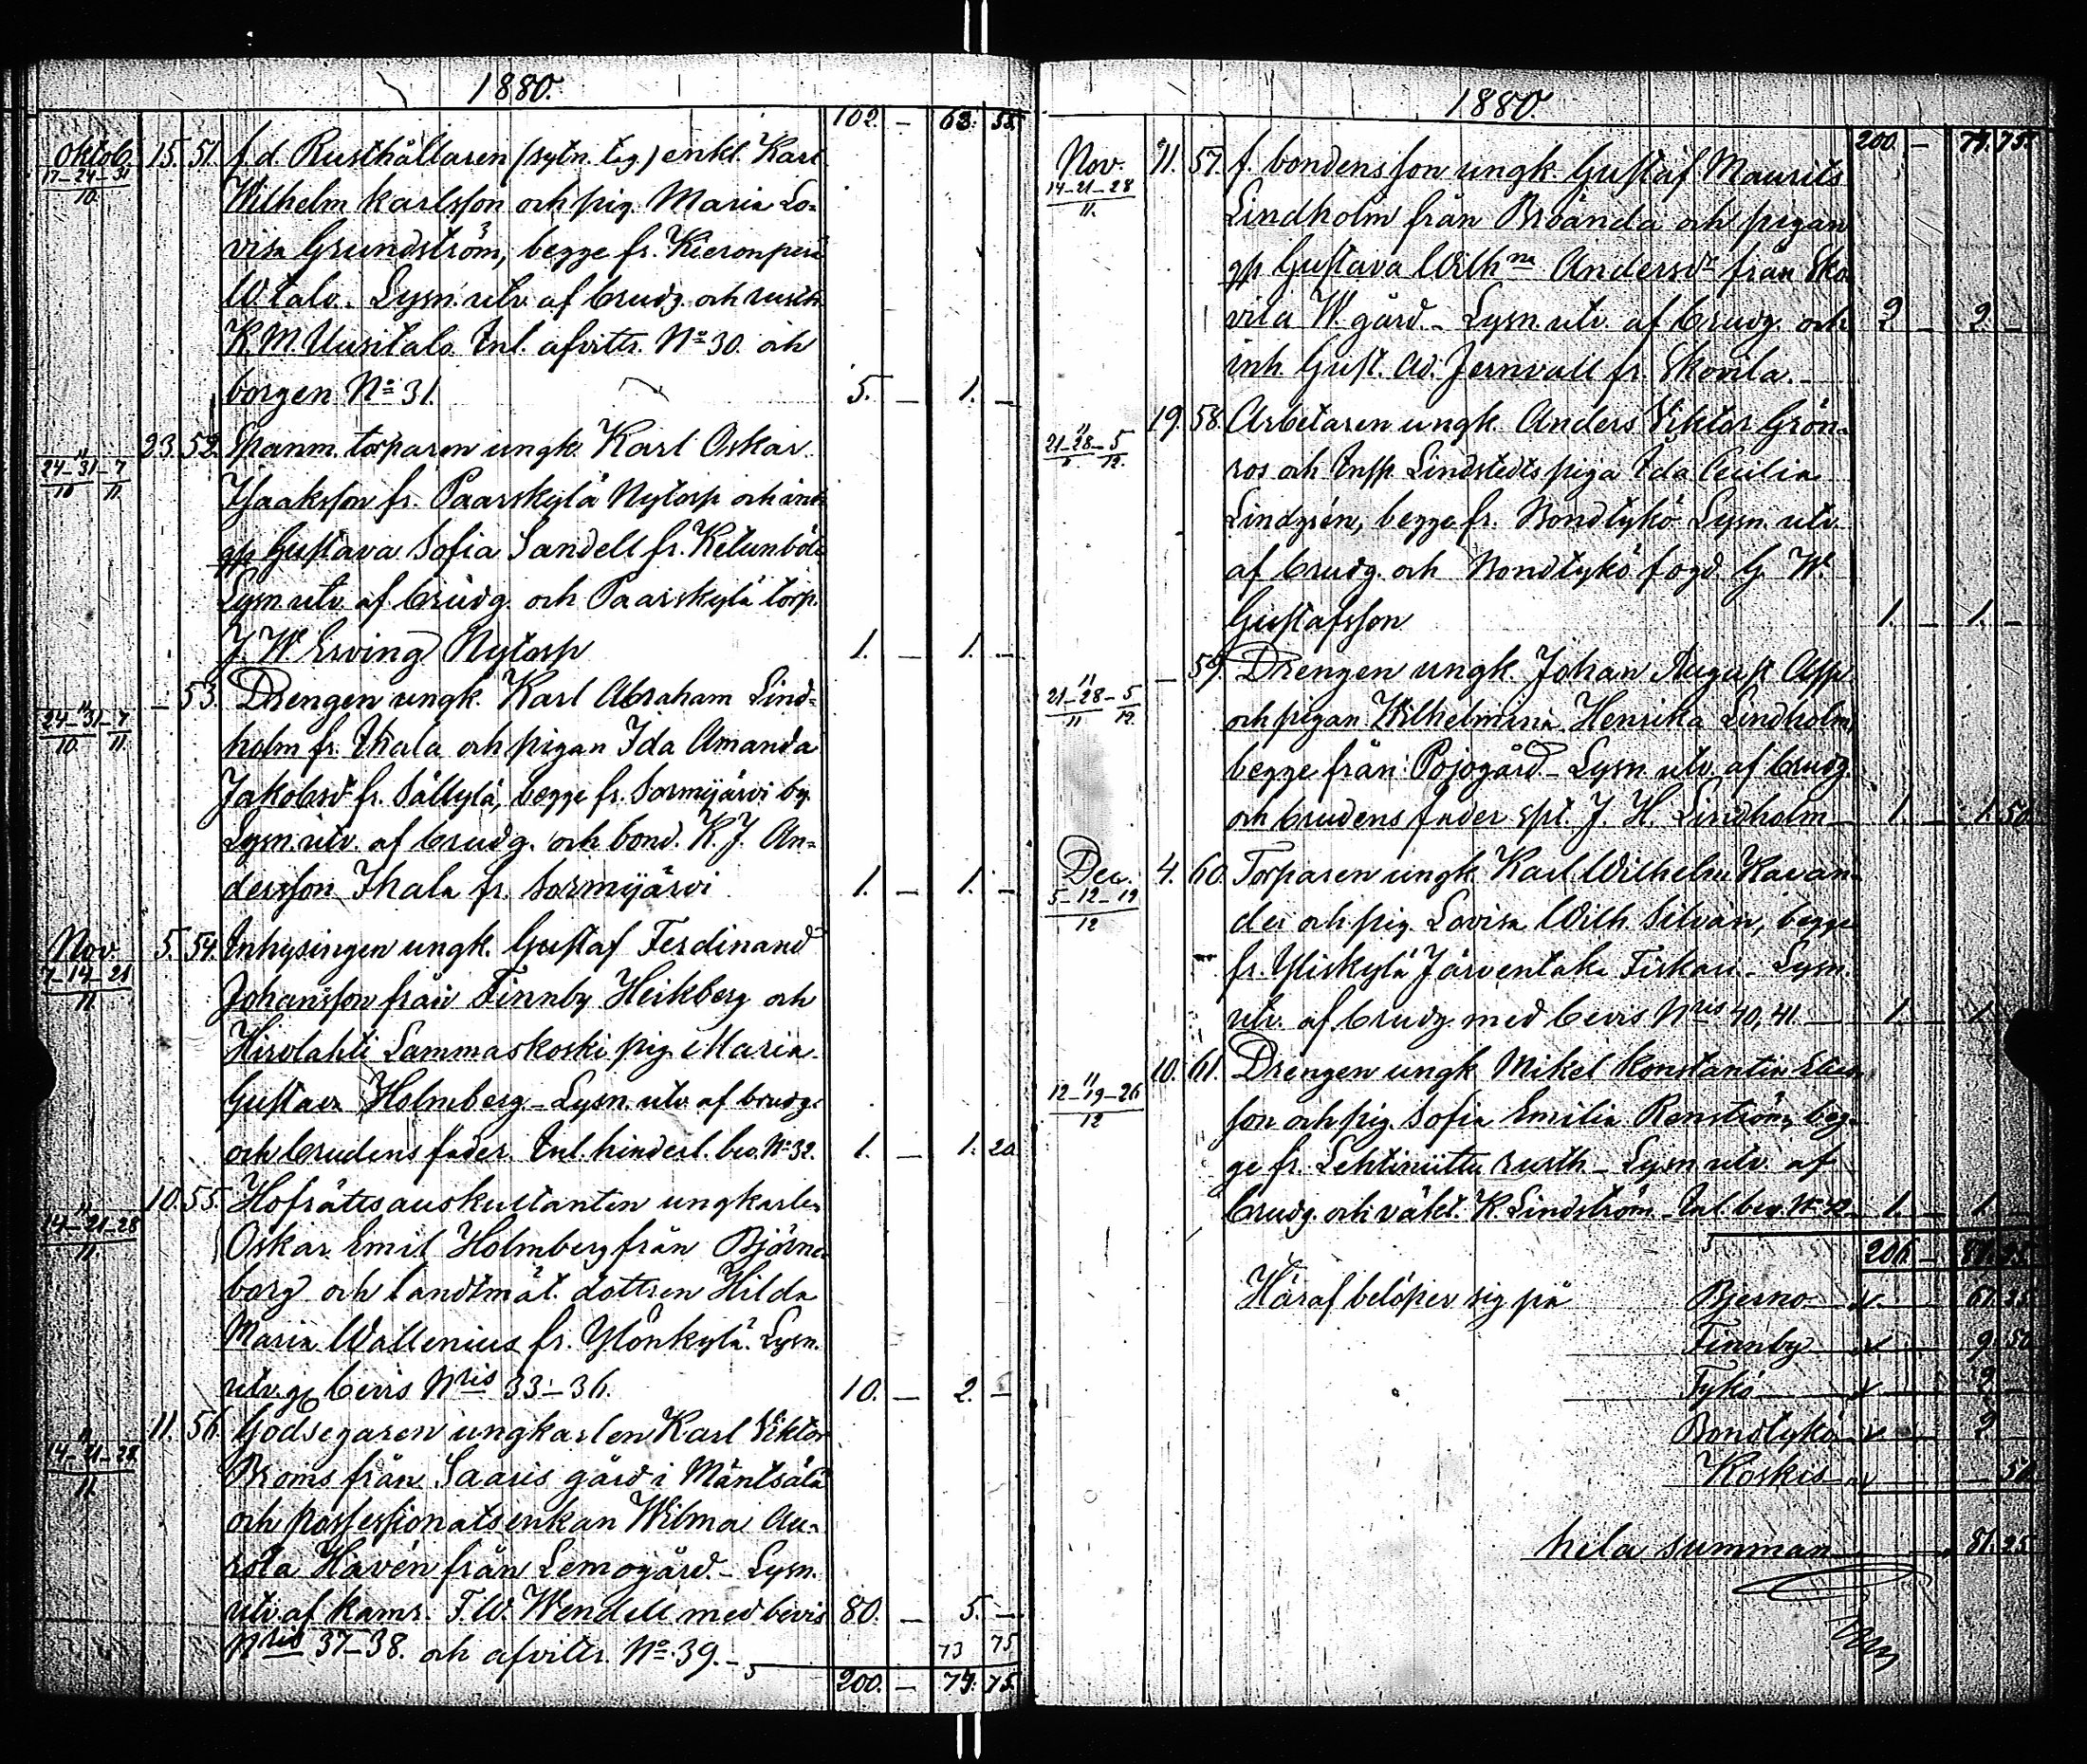 1880.
102. — 63. 55.
Oktob. 15. 51. f. d. Rusthållaren (sytn. tag.) enkl. Karl
17–24–31
10.
Wilhelm Karlsson och pig. Maria Lo-
visa Grundström, begge fr. Kieronperä
W. talo. Lysn. utv. af brudg. och rusth.
K. M. Uusitalo. Inl. afvittr. No 30. och
borgen No 31. 5. — 1. —
" 23. 52. Spanm. torparen ungk. Karl Oskar
24–31–7
10 11.
Isaaksson fr. Paarskylä Nytorp och inh.
gp Gustava Sofia Sandell fr. Ketunböle
Lysn. utv. af brudg. och Paarskylä torp.
J. W. Erving Nytorp 1. — 1. —
" — 53. Drengen ungk. Karl Abraham Lind-
24–31–7
10. 11.
holm fr. Ihala och pigan Ida Amanda
Jakobsdr fr. Sällylä, begge fr. Sormijärvi by.
Lysn. utv. af brudg. och bond. K. J. An-
dersson Ihala fr. Sormijärvi 1. — 1. —
Nov. 5. 54. Inhysingen ungk. Gustaf Ferdinand
7–14–21
11.
Johansson från Finnby Heikberg och
Hirvlahti Lammaskoski pig. Maria
Gustava Holmberg – Lysn. utv. af brudg.
och brudens fader. Inl. hinderl. bev. No 32. 1. — 1. 20.
" 10. 55. Hofrättsauskultanten ungkarlen
14–21–28
11.
Oskar Emil Holmberg från Björne-
borg och landtmät. dottren Hilda
Maria Wallenius fr. Ylönkylä. Lysn.
utv. gp bevis Nris 33–36. 10. — 2. —
" 11. 56. Godsegaren ungkarlen Karl Viktor
14–21–28
11.
Broms från Saaris gård i Mäntsälä
och possessionatsenkan Wilma Au-
rora Havén från Lemogård. – Lysn.
utv. af kamr. F. W. Wendell med bevis 80. — 5. —
Nris 37–38. och afvittr. No 39. – 73 75
200. — 74. 75.
1880.
200. — 74. 75.
Nov. 11. 57. f. bondensson ungk. Gustaf Maurits
14–21–28
11.
Lindholm från Broända och pigan
gp Gustava Wilhna Andersdr från Sko-
vila W. gård. – Lysn. utv. af brudg. och 2. — 2. —
inh. Gust. Ad. Jernvall fr. Skovila. –
" 19. 58. Arbetaren ungk. Anders Viktor Grön-
21–28–5
11 12.
ros och Insp. Lindstedts piga Ida Cecilia
Lindgrén, begge fr. Nordtykö. Lysn. utv.
af brudg. och Nordtykö fogd. G. W.
Gustafsson 1. — 1. —
" — 59. Drengen ungk. Johan August Asp.
21–28–5
11 12.
och pigan Wilhelmina Henrika Lindholm,
begge från Pojogård – Lysn. utv. af brudg.
och brudens fader spl. J. H. Lindholm – 1. — 1. 50.
Dec. 4. 60. Torparen ungk. Karl Wilhelm Kavan-
5–12–19
12
der och pig. Lovisa Wilh. Silvan, begge
fr. Yliskylä Järventaka Fiskari – Lysn.
utv. af brudg. med bevis Nris 40, 41. 1. — 1. —
" 10. 61. Drengen ungk. Mikel Konstantin
12–19–26
12
son och pig. Sofia Emilia Renström, beg-
ge fr. Lehtiniittu rusth. – Lysn. utv. af
brudg. och väkt. K. Lindström. Inl. bev. No 42. 1. — 1. —
206. — 81. 25.
Häraf belöper sig på Bjerno 67. 25
Finnby 9. 50
Tykö 2
Nordtykö 2
Koskis 50
hela summan 81. 25